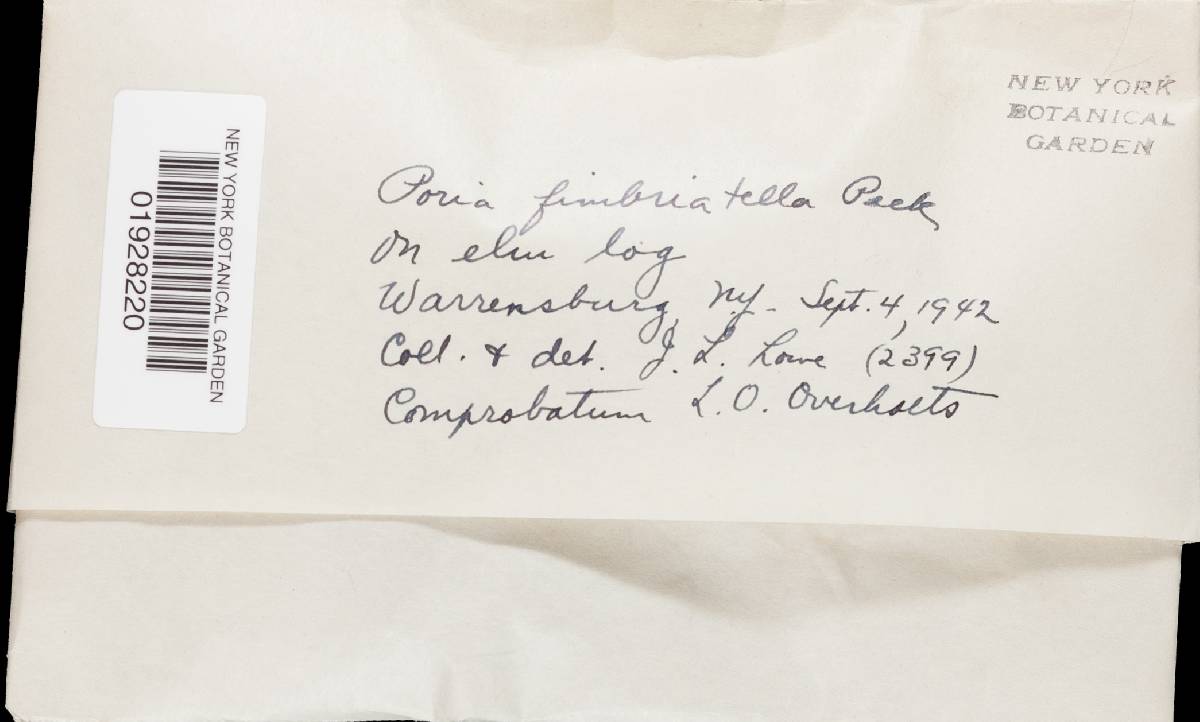 NEW YORK
BOTANICAL
GARDEN
NEW YORK BOTANICAL GARDEN
01928220
Poria fimbriatella Peck
On elm log
Warrensburg, N.Y. - Sept. 4, 1942
Coll. & det. J. L. Lowe (2399)
Comprobatum L. O. Overholts